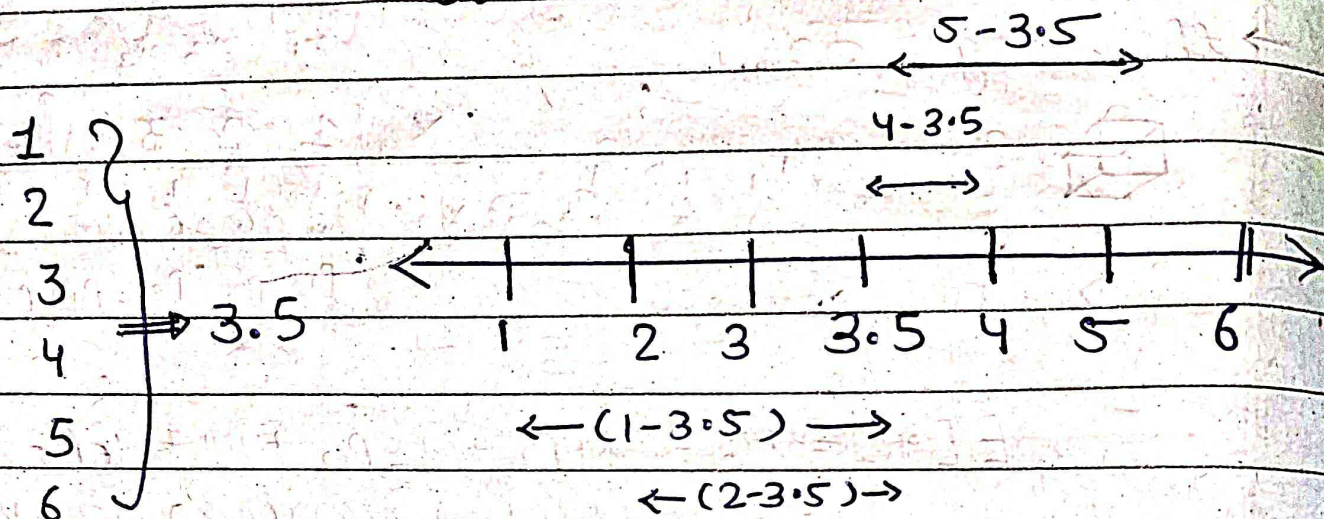 5-3.5
4-3.5
1
2
3
4
5
6
3.5
1 2 3 3.5 4 5 6
(1-3.5)
(2-3.5)